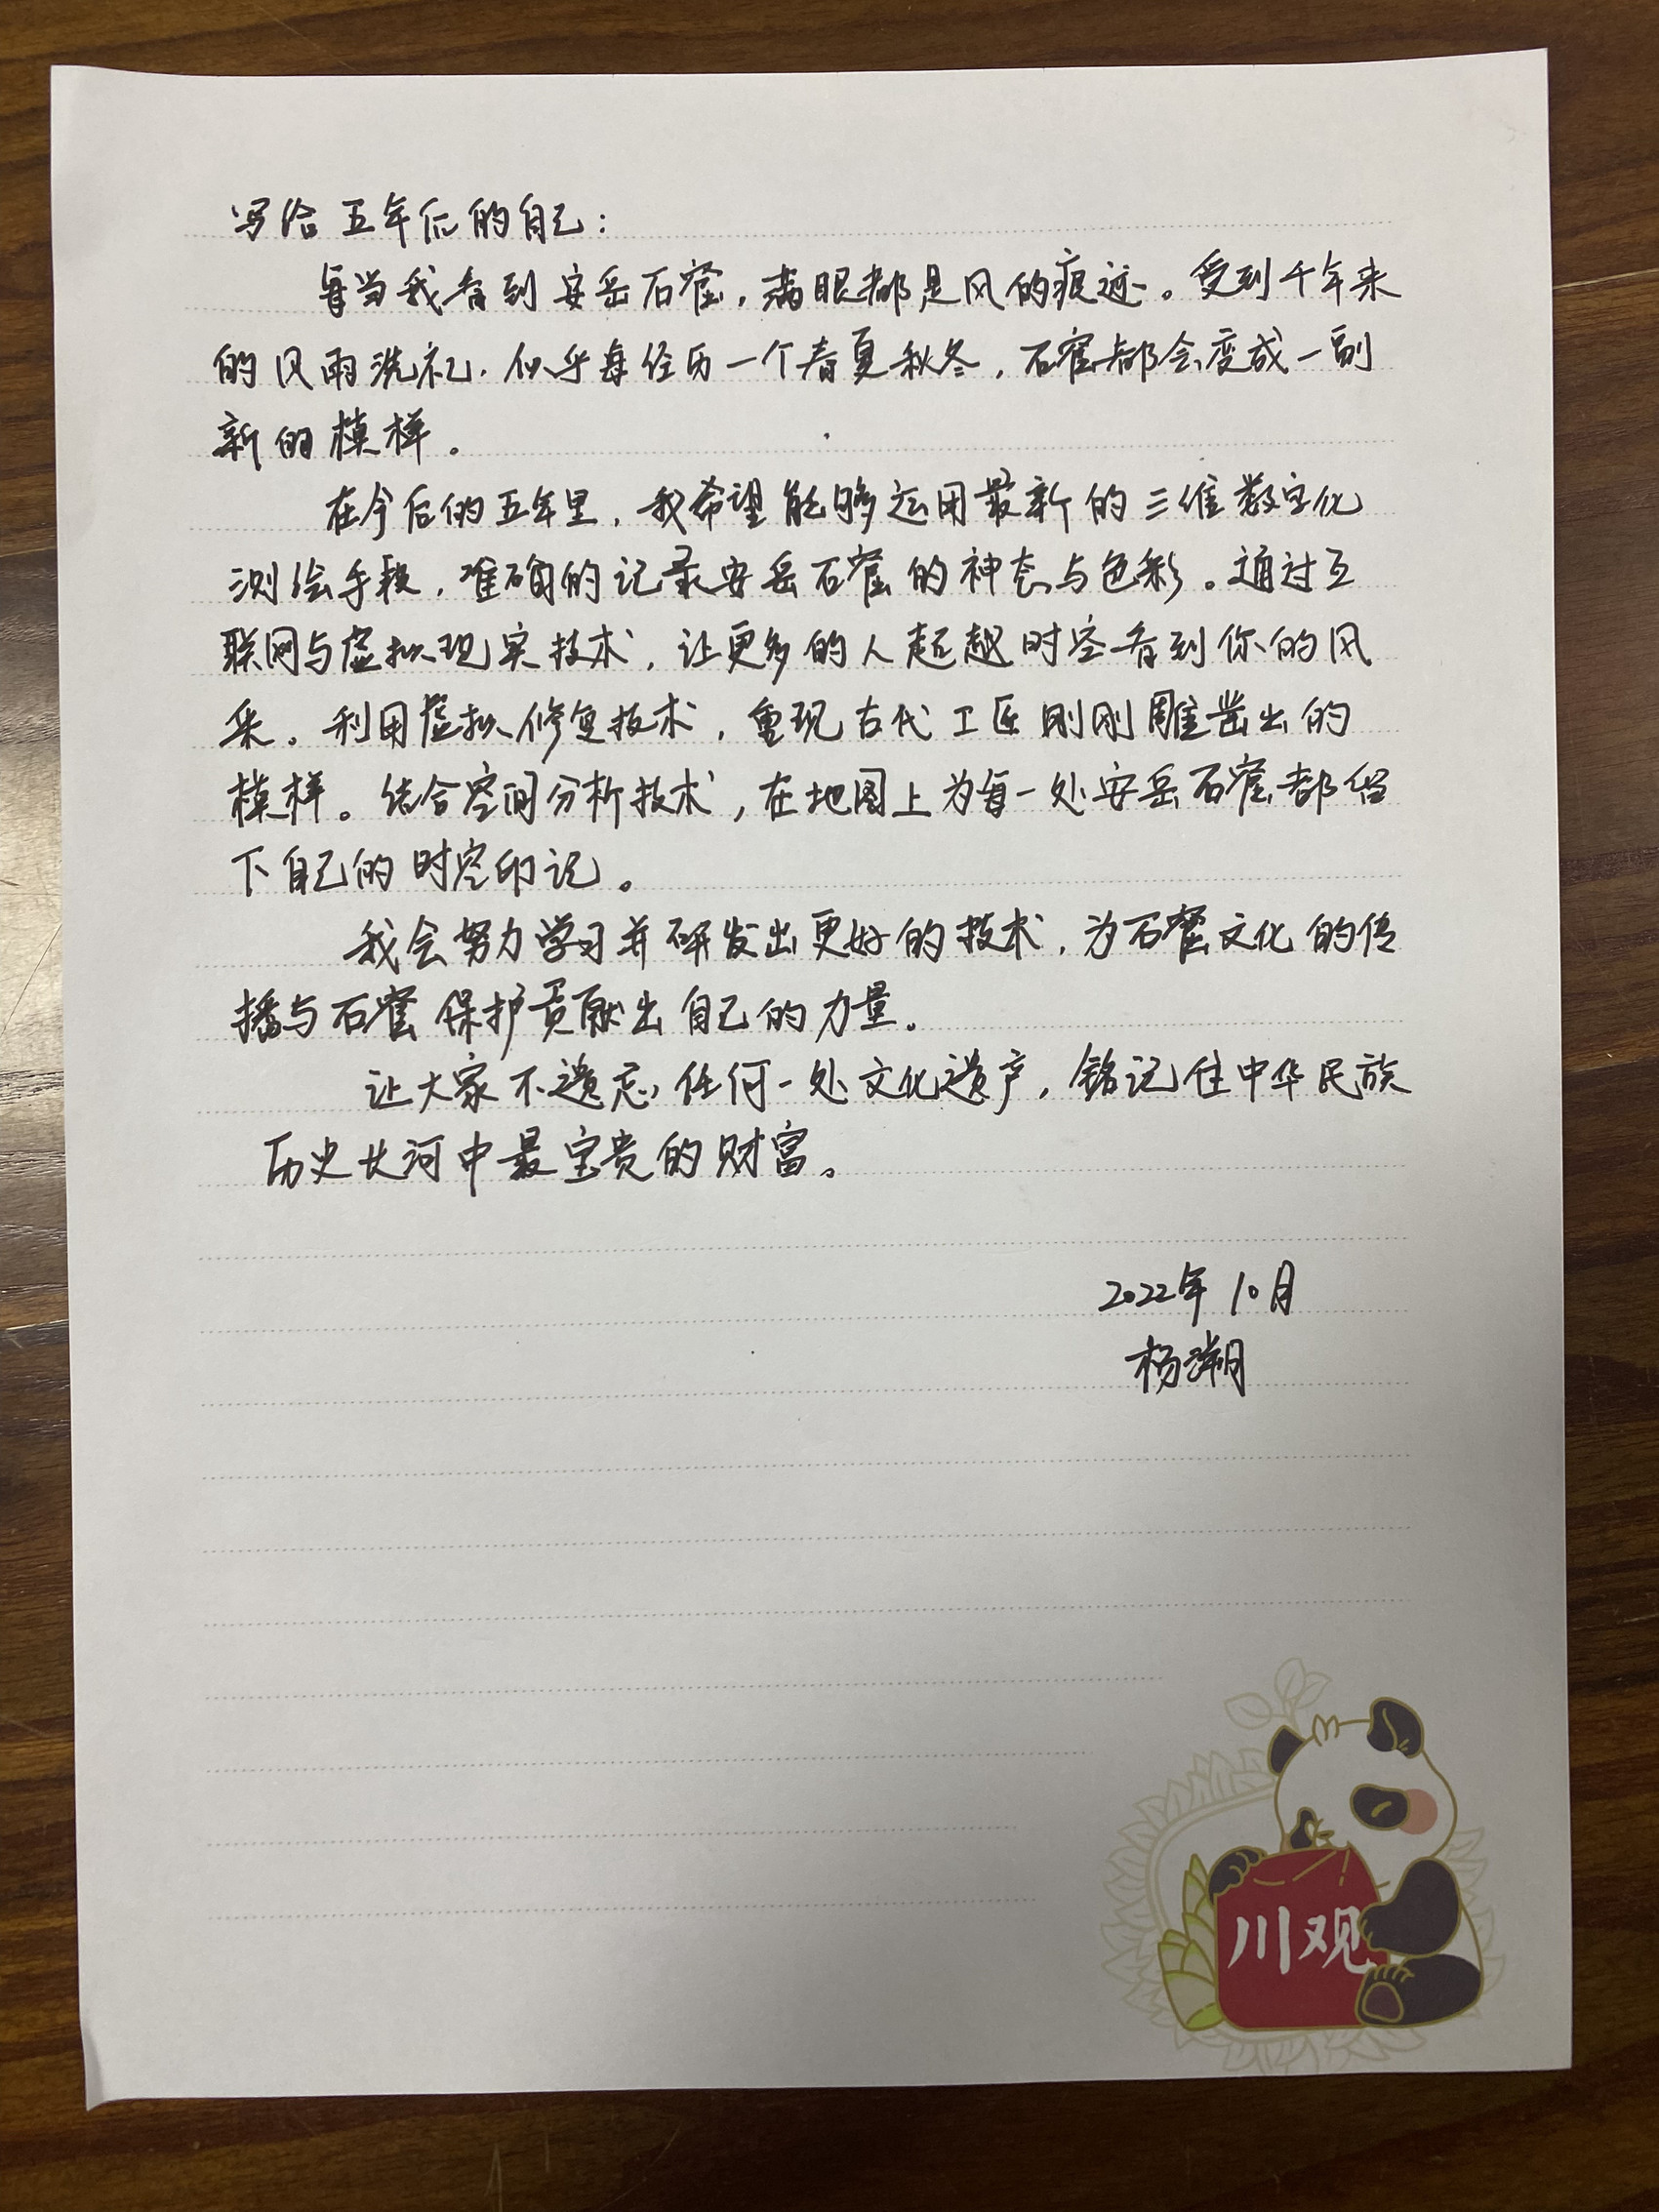 写给五年后的自己：
每当我看到安岳石窟，满眼都是风的痕迹。受到千年来
的风雨洗礼，似乎每经历一个春夏秋冬，石窟都会变成一副
新的模样。
在今后的五年里，我希望能够运用最新的三维数字化
测绘手段，准确的记录安岳石窟的神态与色彩。通过互
联网与虚拟现实技术，让更多的人超越时空看到你的风
采。利用虚拟修复技术，重现古代工匠刚刚雕凿出的
模样。结合空间分析技术，在地图上为每一处安岳石窟都留
下自己的时空印记。
我会努力学习并研发出更好的技术，为石窟文化的传
播与石窟保护贡献出自己的力量。
让大家不遗忘任何一处文化遗产，铭记住中华民族
历史长河中最宝贵的财富。
2022年10月
杨溯
川观